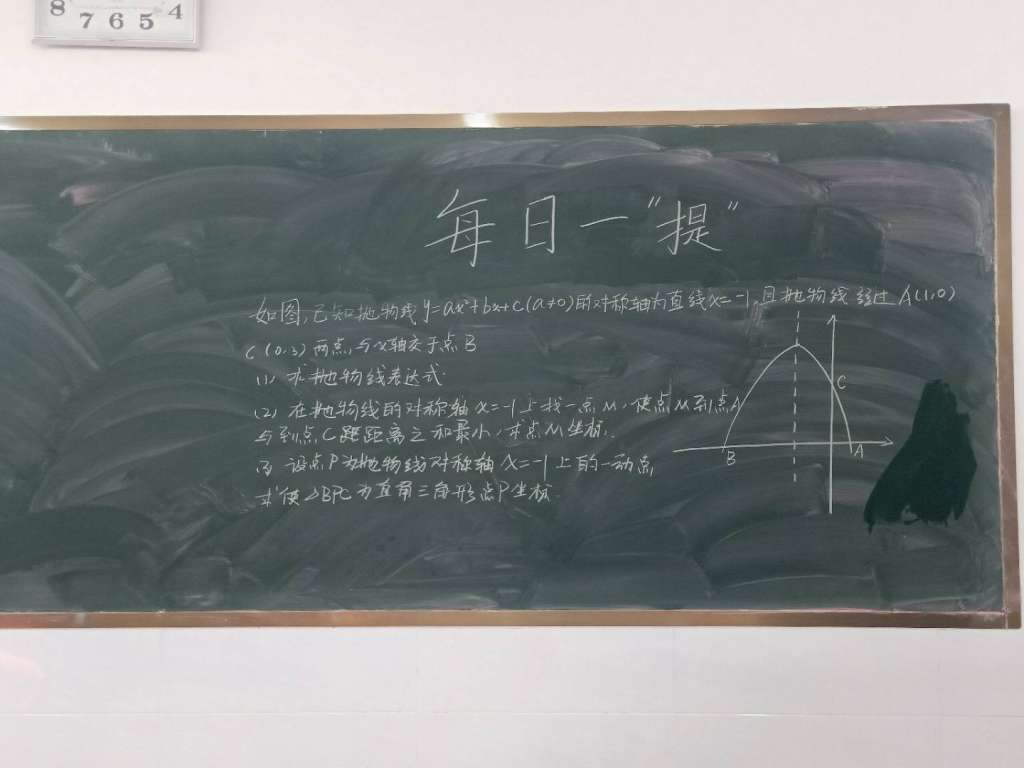 8 7 6 5 4
每日一“提”
如图,已知抛物线y=ax²+bx+c(a≠0)的对称轴为直线x=-1,且抛物线经过A(1,0)
C(0,3)两点,与x轴交于点B
(1) 求抛物线表达式.
(2) 在抛物线的对称轴x=-1上找一点M,使点M到点A
与到点C距距离之和最小,求点M坐标.
(3) 设点P为抛物线对称轴x=-1上的一动点
求使△BPC为直角三角形点P坐标.
C
B
A